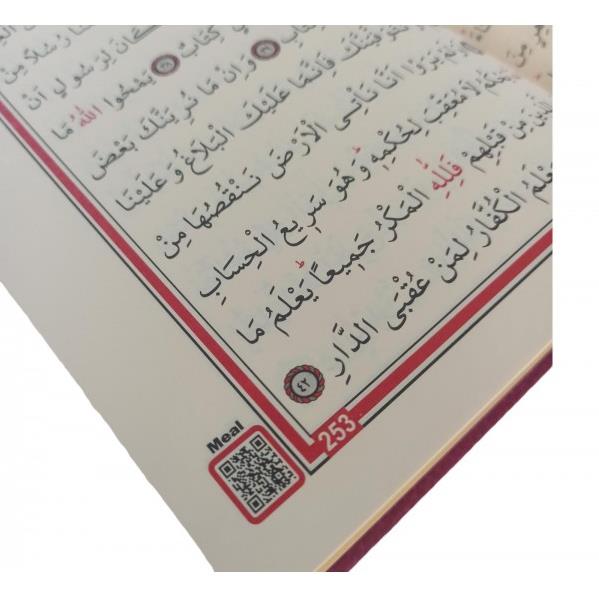 كَانَ لِرَسُولٍ اَنْ
كِتَابٌ ﴿٣٨﴾ يَمْحُوا اللّٰهُ مَا
الْكِتَابِ ﴿٣٩﴾ وَاِنْ مَا نُرِيَنَّكَ بَعْضَ
فَاِنَّمَا عَلَيْكَ الْبَلَاغُ وَعَلَيْنَا
يَرَوْا اَنَّا نَأْتِى الْاَرْضَ نَنْقُصُهَا مِنْ
لَا مُعَقِّبَ لِحُكْمِهِ وَهُوَ سَرِيعُ الْحِسَابِ
مِنْ قَبْلِهِمْ فَلِلّٰهِ الْمَكْرُ جَمِيعًا يَعْلَمُ مَا
الْكُفَّارُ لِمَنْ عُقْبَى الدَّارِ ﴿٤٢﴾
253
Meal